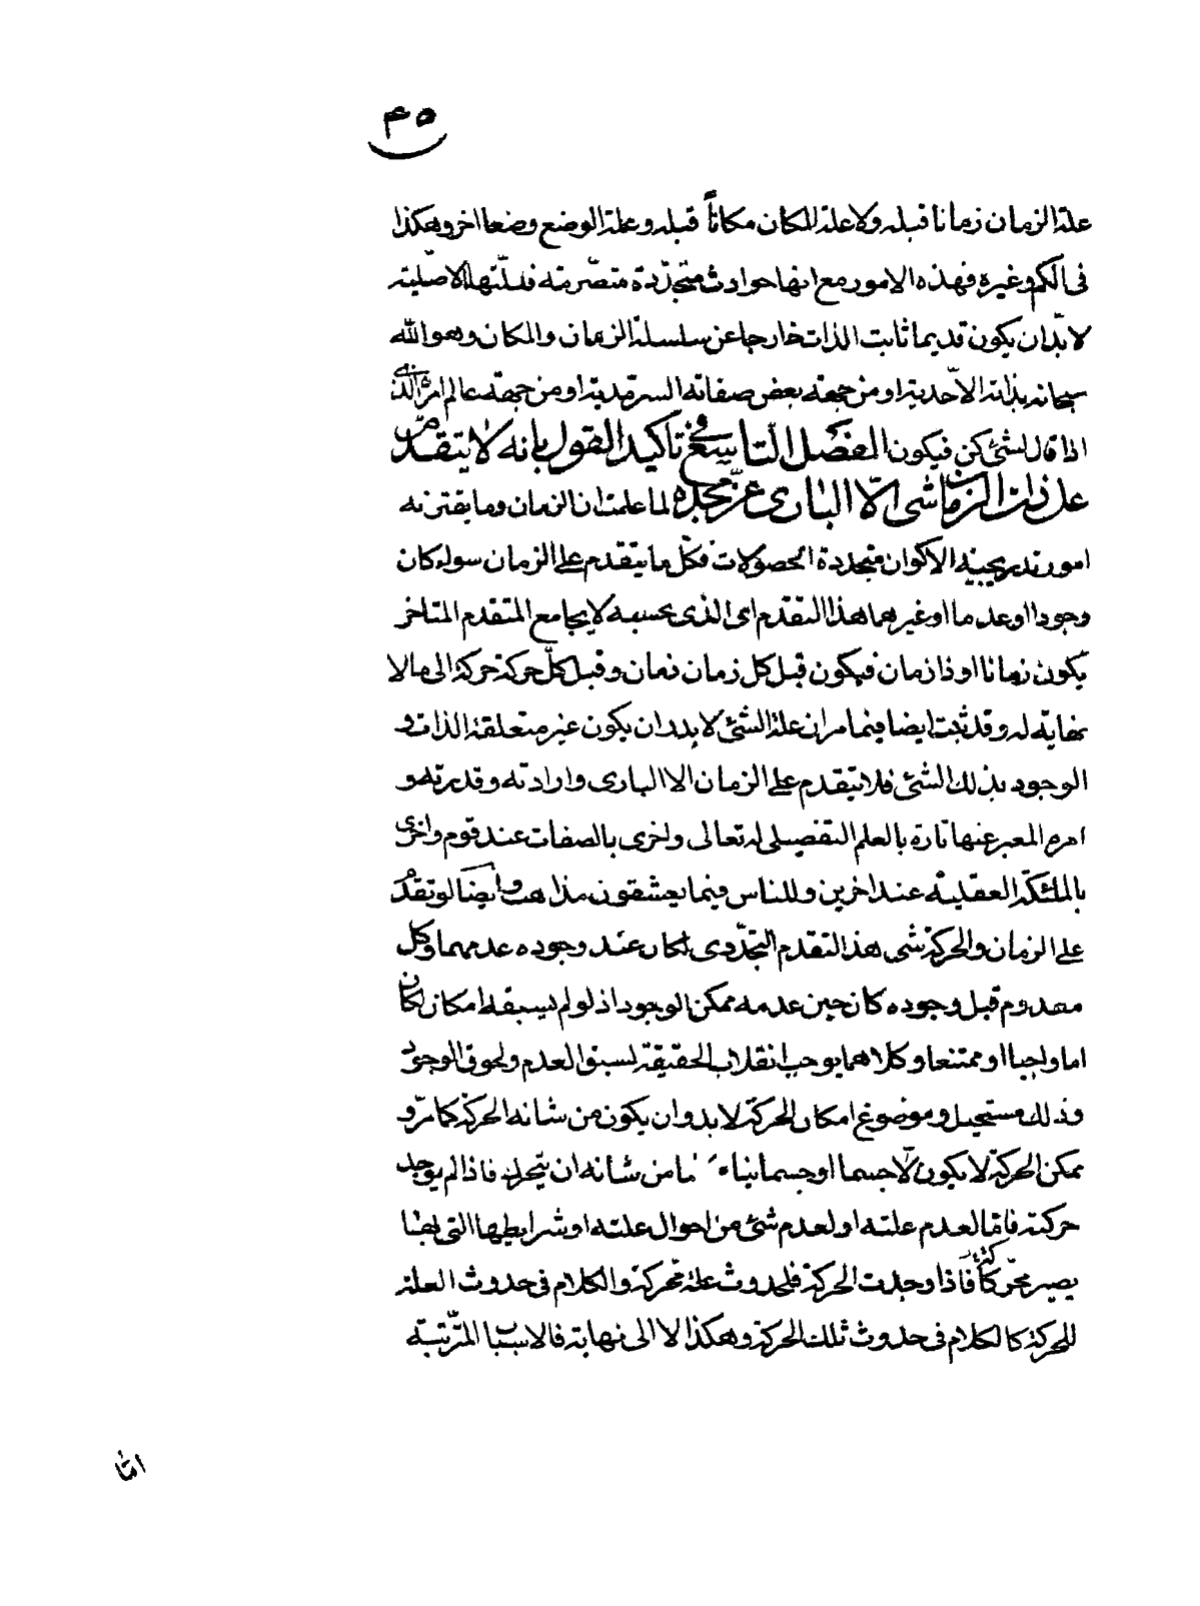 ٤٥
علة الزمان زمانا قبله ولا علة المكان مكاناً قبله وعلة الوضع وضعا اخر وهكذا
فى الكم وغيره فهذه الامور مع انها حوادث متجدّدة متصّرمة فعلّتها الاصّلية
لا بدّ ان يكون قديما ثابت الذات خارجا عن سلسلة الزمان والمكان وهو الله
سبحانه بذاته الاحّدية او من جهة بعض صفاته السرمدية او من جهة عالم امره الذى
اذا قال لشئ كن فيكون الفصل التاسع فى تاكيد القول بانه لا يتقدم
على ذات الزمان شى الّا البارى عزّ مجده لما علمت ان الزمان وما يقترنه
امور تدريجيّة الاكوان متجددة الحصولات فكلّ ما يتقدم على الزمان سواء كان
وجودا او عدما او غيرهما هذا التقدم اى الذى بحسبه لا يجامع المتقدم المتاخر
يكون زمانا او ذا زمان فيكون قبل كل زمان زمان وقبل كلّ حركة حركة الى ما لا
نهاية له وقد ثبت ايضا فيما مر ان علة الشئ لا بد وان يكون غير متعلقة الذات و
الوجود بذلك الشئ فلا يتقدم على الزمان الا البارى وارادته وقدرته و
امره المعبر عنها تارة بالعلم التفصيلى له تعالى واخرى بالصفات عند قوم واخرى
بالملئكة العقلية عند اخرين وللناس فيما يعشقون مذاهب وايضا لو تقدم
على الزمان والحركة شى هذا التقدم التجدّدى لكان عند وجوده عدمهما وكل
معدوم قبل وجوده كان حين عدمه ممكن الوجود اذ لو لم يسبقه امكان لكان
اما واجبا او ممتنعا وكلاهما يوجب انقلاب الحقيقة لسبق العدم ولحوق الوجود
وذلك مستحيل وموضوع امكان الحركة لا بد وان يكون من شانه الحركة كما مرّ و
ممكن الحركة لا يكون الّا جسما او جسمانياء ما من شانه ان يتحرك فاذا لم يوجد
حركته فامّا لعدم علته او لعدم شئ من احوال علته او شرايطها التى بها
يصير محرّكا فاذا وجدت الحركة فلحدوث علة محّركة والكلام فى حدوث العلة
للحركة كالكلام فى حدوث تلك الحركة وهكذا لا الى نهاية فالاسباب المترّتبة
امّا